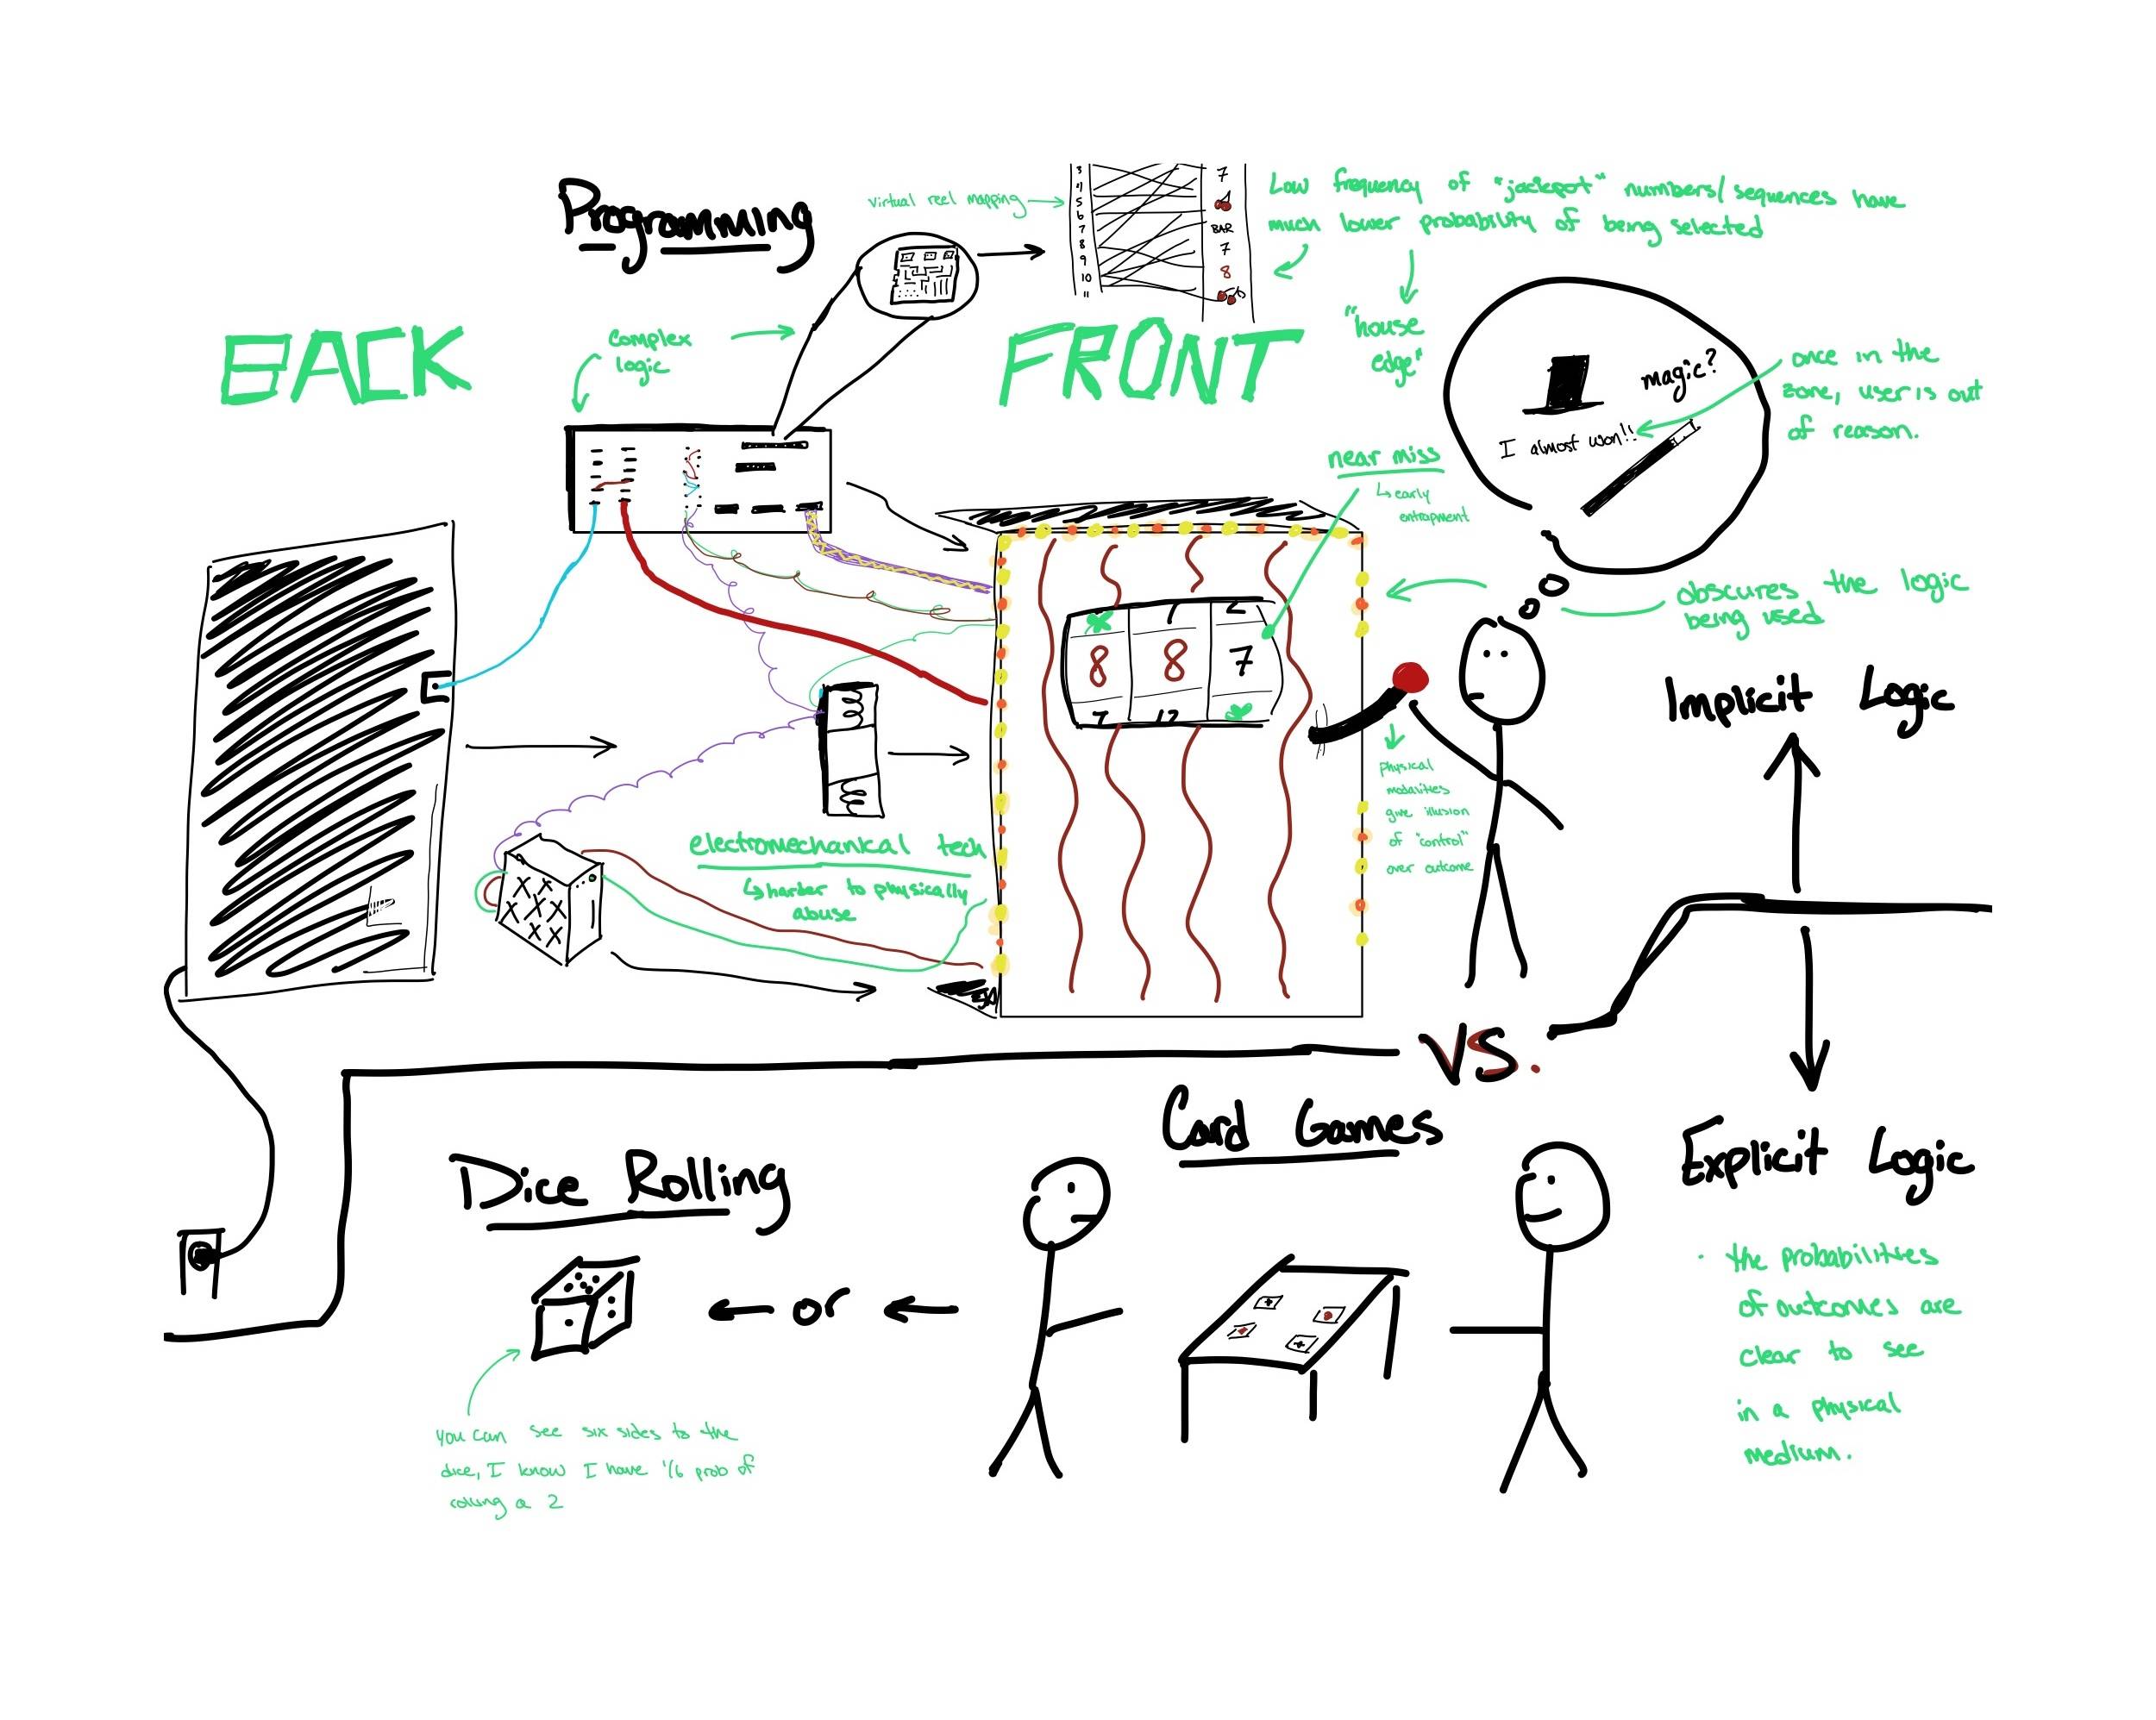 Programming
virtual reel mapping
3
4
5
6
7
8
9
10
11
7
BAR
7
8
Low frequency of "jackpot" numbers/sequences have
much lower probability of being selected
"house
edge"
BACK
complex
logic
FRONT
magic?
I almost won!!
once in the
zone, user is out
of reason.
near miss
↳ early
entrapment
obscures the logic
being used
7
8 8 7
7 12
Implicit Logic
physical
modalities
give illusion
of "control"
over outcome
electromechanical tech
↳ harder to physically
abuse
X X
X X X
X X
VS.
Card Games
Dice Rolling
Explicit Logic
← or ←
• the probabilities
of outcomes are
clear to see
in a physical
medium.
you can see six sides to the
dice, I know I have 1/6 prob of
rolling a 2